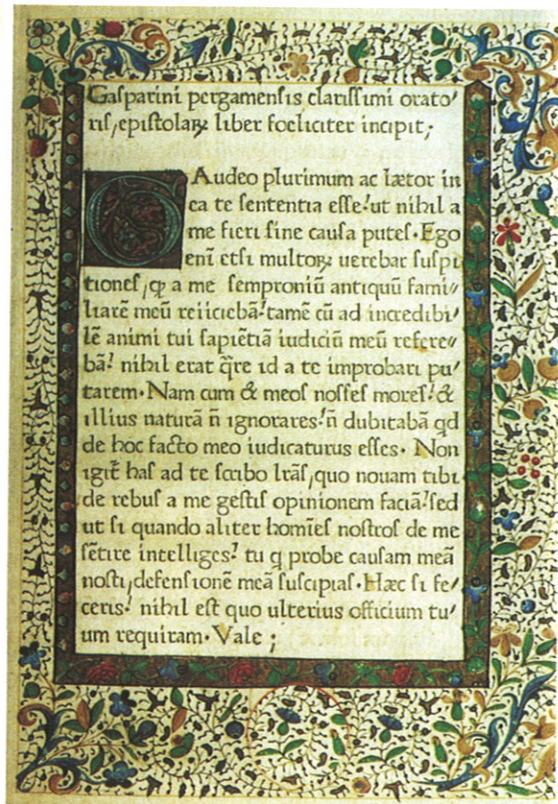 Gasparini pergamensis clarissimi orato⸗
ris, epistolaꝝ liber foeliciter incipit;
GAudeo plurimum ac lætor in
ea te sententia esse! ut nihil a
me fieri sine causa putes. Ego
eni etsi multoꝝ uerebar suspi
tiones, ꝙ a me semproniū antiquū fami⸗
liarē meū reiiciebā! tamē cū ad incredibi⸗
lē animi tui sapiētiā iudiciū meū refere⸗
bā! nihil erat q̄re id a te improbari pu⸗
tarem. Nam cum & meos nosses mores! &
illius naturā ñ ignorares! ñ dubitabā qd
de hoc facto meo iudicaturus esses. Non
igit̄ has ad te scribo lr̄as, quo nouam tibi
de rebus a me gestis opinionem faciā! sed
ut si quando aliter homīes nostros de me
sētire intelliges! tu q probe causam meā
nosti, defensionē meā suscipias. Hæc si fe⸗
ceris! nihil est quo ulterius officium tu⸗
um requiram. Vale;